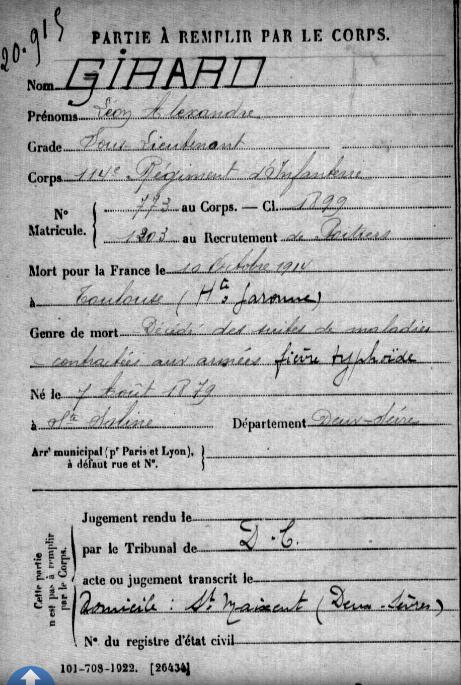 20.915
PARTIE À REMPLIR PAR LE CORPS.
Nom GIRARD
Prénoms Léon Alexandre
Grade Sous Lieutenant
Corps 114e Régiment d'Infanterie
N° Matricule. 773 au Corps. — Cl. 1899
1303 au Recrutement de Poitiers
Mort pour la France le 10 Octobre 1914
à Toulouse (Hte Garonne)
Genre de mort Décédé des suites de maladies
contractées aux armées fièvre typhoïde
Né le 7 Août 1879
à Ste Soline Département Deux-Sèvres
Arrt municipal (pr Paris et Lyon), à défaut rue et N°.
Cette partie n'est pas à remplir par le Corps.
Jugement rendu le
par le Tribunal de D.C.
acte ou jugement transcrit le
Domicile : St Maixent (Deux-Sèvres)
N° du registre d'état civil
101-708-1922. [26434]